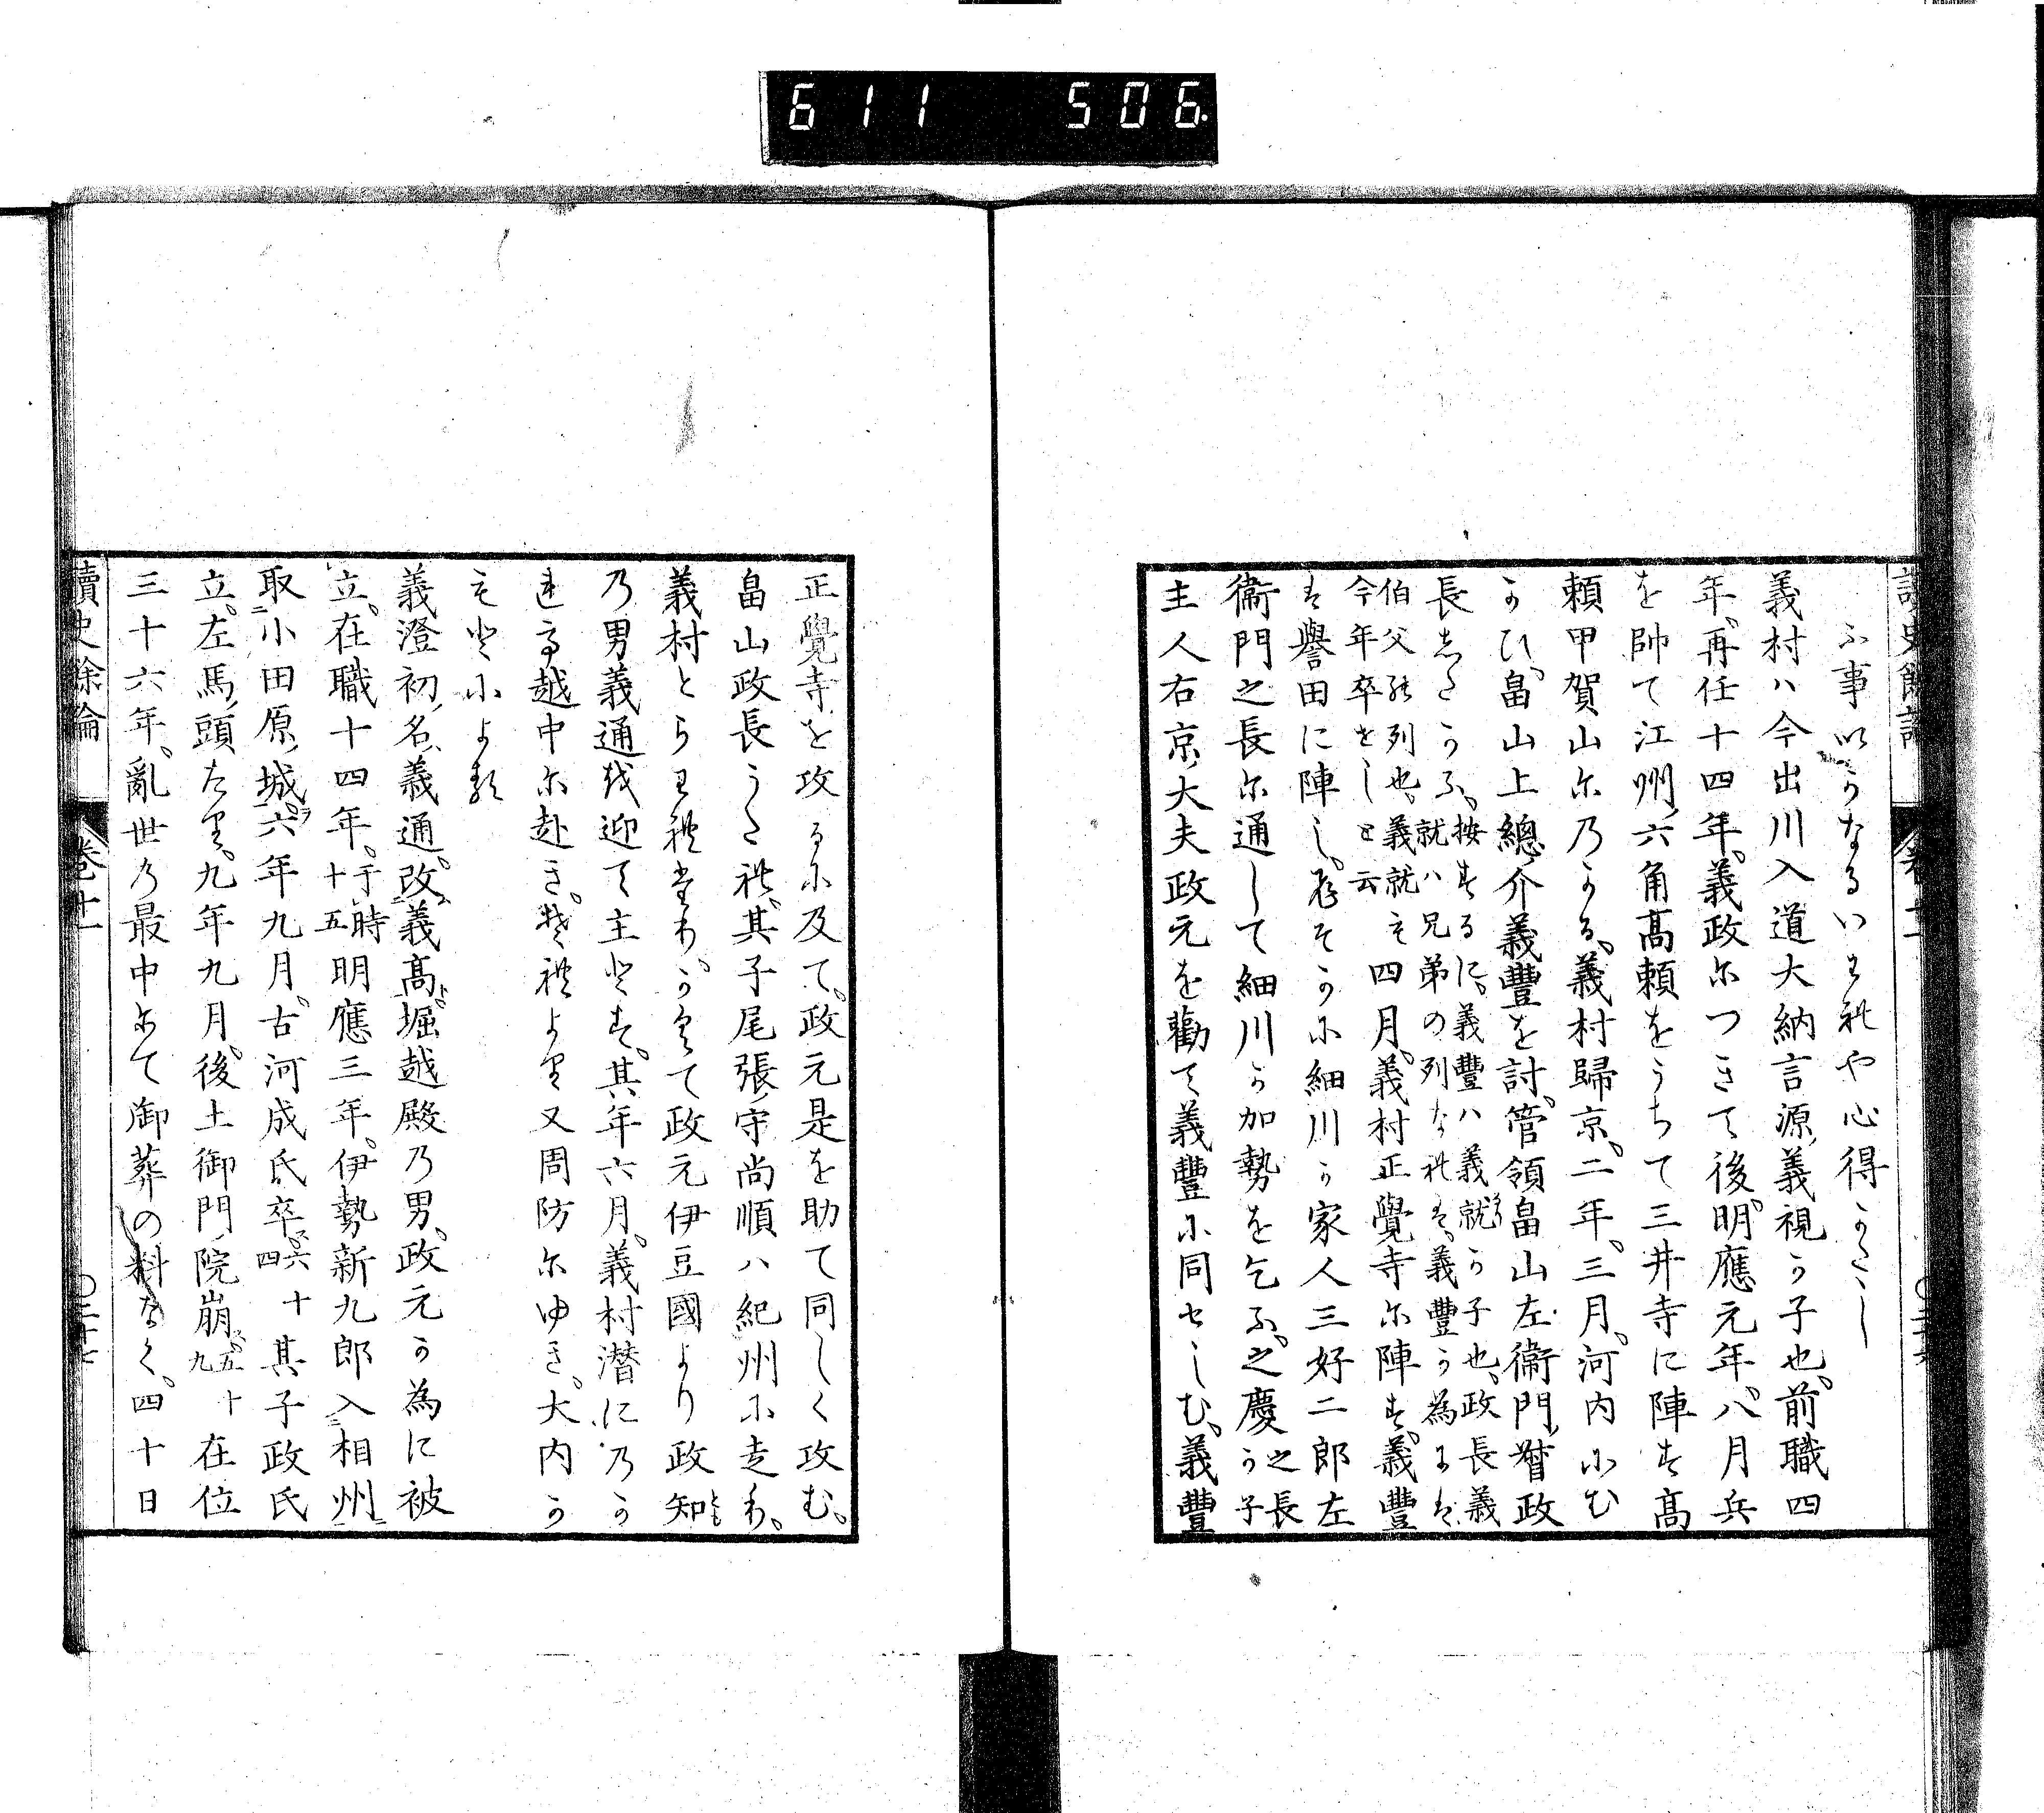 611 506
讀史餘論 卷十一 〇二十六
ふ事いかなるいはれや心得かたし
義村ハ今出川入道大納言源義視か子也前職四
年再任十四年義政につきて後明應元年八月兵
を帥て江州六角髙頼をうちて三井寺に陣す髙
頼甲賀山にのかる義村歸京二年三月河内にむ
かひ畠山上總介義豐を討管領畠山左衞門督政
長したかふ按するに義豐ハ義就か子也政長義
就ハ兄弟の列なれは義豐か為には
伯父の列也義就も
今年卒せしと云四月義村正覺寺に陣す義豐
は譽田に陣し居そかに細川か家人三好二郎左
衞門之長に通して細川か加勢を乞ふ之慶之長
か子
主人右京大夫政元を勸て義豐に同せしむ義豐
正覺寺を攻るに及て政元是を助て同しく攻む
畠山政長うたれ其子尾張守尚順ハ紀州に走り
義村とらはれたりかくて政元伊豆國より政知とも
の男義通を迎て主とす其年六月義村潜にのか
れ出越中に赴きそれより又周防にゆき大内か
もとによる
義澄初名義通改義髙堀越殿の男政元か為に被
立在職十四年于時
十五明應三年伊勢新九郎入相州
取小田原城六年九月古河成氏卒六十
四其子政氏
立左馬頭たり九年九月後土御門院崩五十
九在位
三十六年亂世の最中にて御葬の料なく四十日
讀史餘論 卷十一 〇二十七